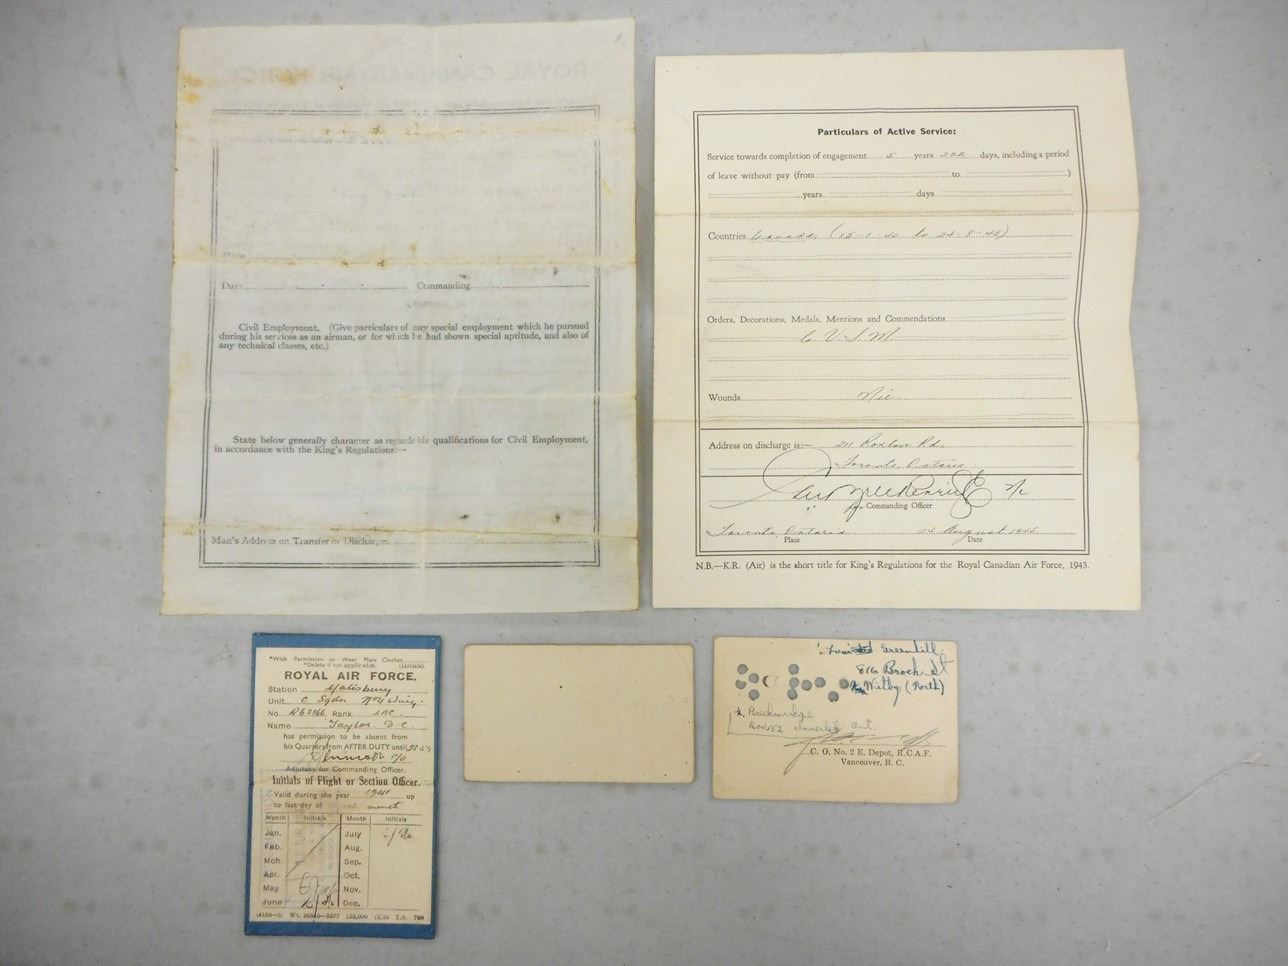 Date Commanding
Civil Employment. (Give particulars of any special employment which he pursued
during his services as an airman, or for which he had shown special aptitude, and also of
any technical classes, etc.)
State below generally character as regards his qualifications for Civil Employment,
in accordance with the King's Regulations:—
Man's Address on Transfer or Discharge
Particulars of Active Service:
Service towards completion of engagement 5 years 222 days, including a period
of leave without pay (from to )
years days
Countries Canada (15-1-40 to 24-8-45)
Orders, Decorations, Medals, Mentions and Commendations
C V S M
Wounds Nil
Address on discharge is:— 211 Rd.
Toronto Ontario
for Commanding Officer
Toronto, Ontario 24 August 1945
Place Date
N.B.—K.R. (Air) is the short title for King's Regulations for the Royal Canadian Air Force, 1943.
*With Permission to Wear Plain Clothes
*Delete if not applicable. (Initials).
ROYAL AIR FORCE.
Station
Unit C Sqdn No 4 Wing
No. Rank LAC
Name Taylor
has permission to be absent from
his Quarters from AFTER DUTY until
Adjutant for Commanding Officer.
Initials of Flight or Section Officer.
Valid during the year 1941 up
to last day of month
Month Initials Month Initials
Jan. July
Feb. Aug.
Mch. Sep.
Apl. Oct.
May Nov.
June Dec.
Greenhill.
Brock St
Witby (North)
Breckenridge
Ont.
C. O. No. 2 E. Depot, R.C.A.F.
Vancouver, B. C.